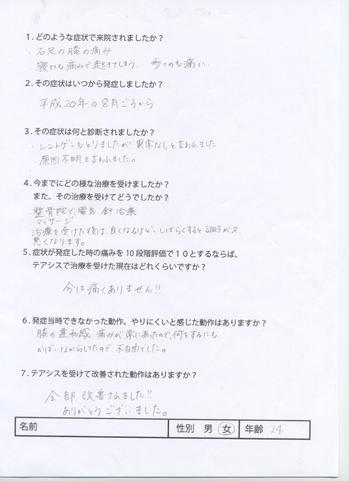 1．どのような症状で来院されましたか？
・右足の膝の痛み
寝ても痛みで起きてしまう、歩くのも痛い
2．その症状はいつから発症しましたか？
平成20年の8月ごろから
3．その症状は何と診断されましたか？
・レントゲンもとりましたが異常なしと言われました
・原因不明と言われました。
4．今までにどの様な治療を受けましたか？
また、その治療を受けてどうでしたか？
整骨院で、電気 針治療
マッサージ
治療を受けた後は良くなるけど、しばらくすると調子が又
悪くなります。
5．症状が発症した時の痛みを10段階評価で10とするならば、
テアシスで治療を受けた現在はどれくらいですか？
今は痛くありません!!
6．発症当時できなかった動作、やりにくいと感じた動作はありますか？
膝の違和感 痛みが常にあったので、何をするにも
かばいながらしてたので、不自由でした。
7．テアシスを受けて改善された動作はありますか？
全部 改善されました!!
ありがとうございました。
名前 性別 男 女 年齢 24